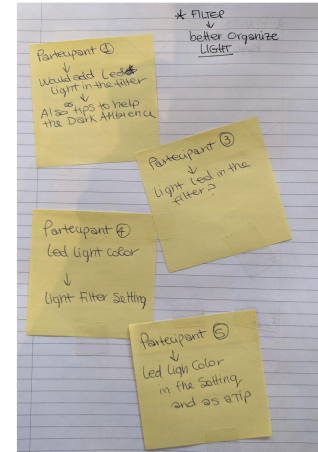 * FILTER
↓
better Organize
LIGHT
Partecipant ①
↓
Would add Led
Light in the filter
↓
Also as tips to help
the Dark AMbience
Partecipant ③
↓
Light Led in the
filter?
Partecipant ④
Led light Color
↓
Light Filter Setting
Partecipant ⑤
↓
Led Ligh Color
in the Setting
and as a Tip